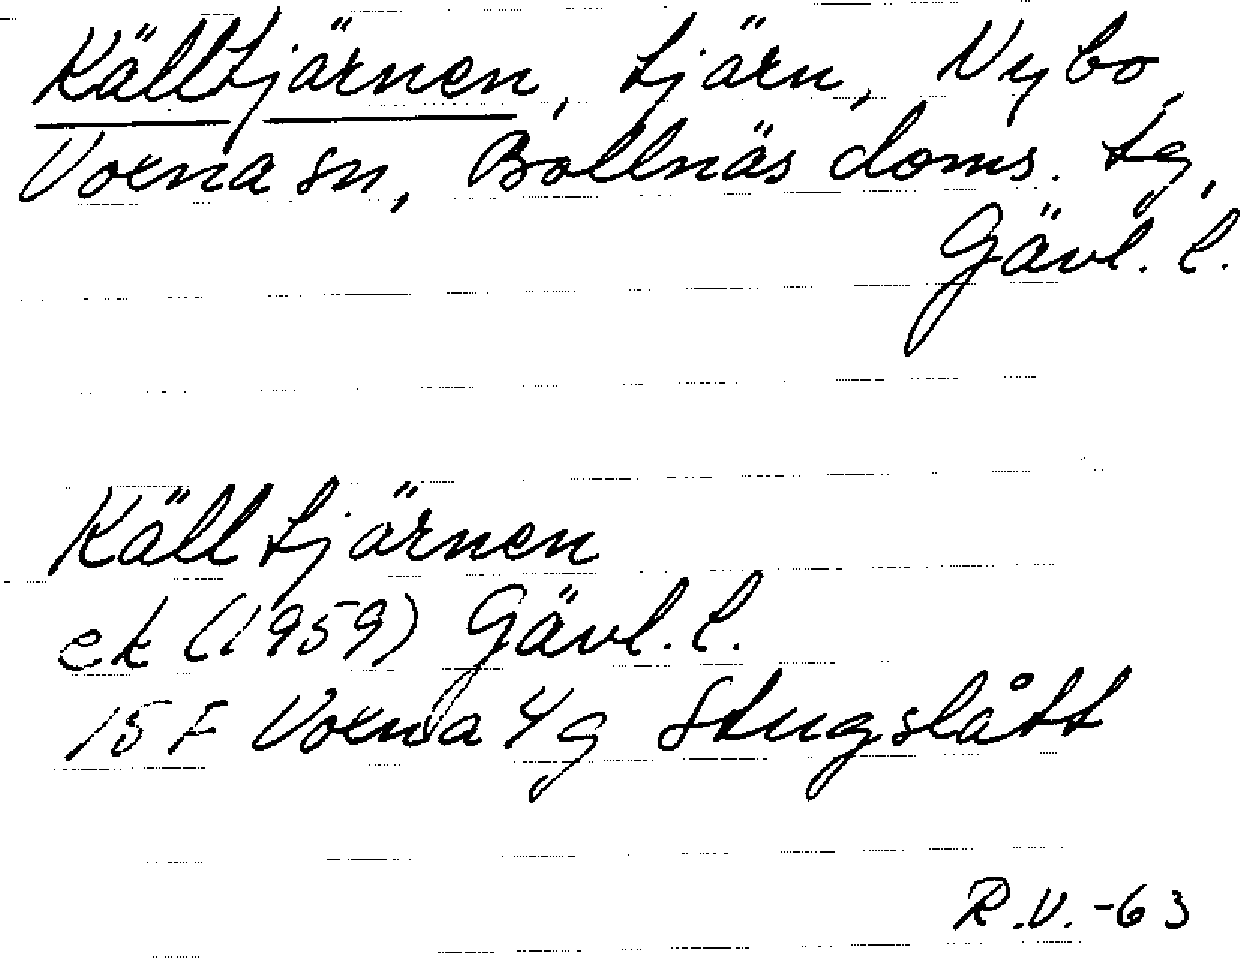 Källtjärnen, tjärn, Nybo,
Voxna sn, Bollnäs doms. tg,
Gävl. l.
Källtjärnen
ek (1959) Gävl. l.
15 F Voxna 4 g Stugslått
R.V. -63